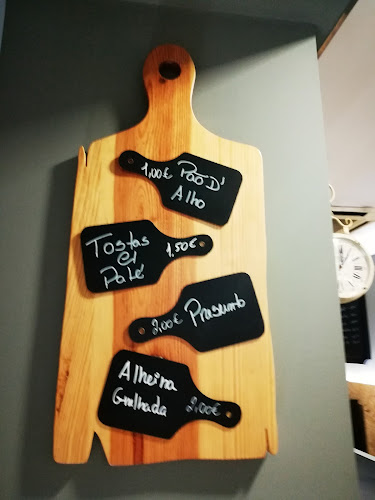 1,00€ Pão D'
Alho
Tostas
c/ 1.50€
Patê
2,00€ Presunto
Alheira
Grelhada 2,00€